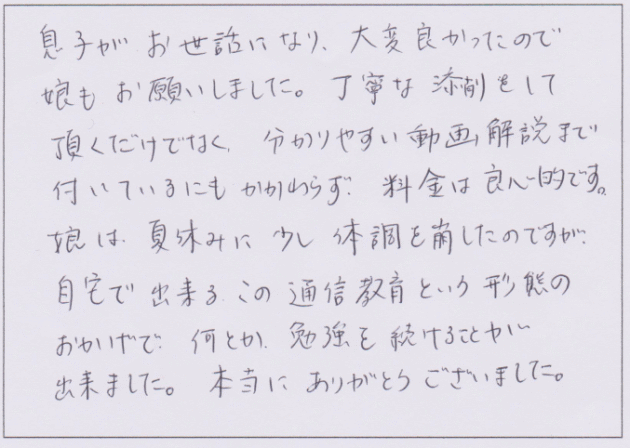 息子がお世話になり、大変良かったので
娘もお願いしました。丁寧な添削をして
頂くだけでなく、分かりやすい動画解説まで
付いているにもかかわらず、料金は良心的です。
娘は、夏休みに少し体調を崩したのですが、
自宅で出来る、この通信教育という形態の
おかげで、何とか、勉強を続けることが
出来ました。本当にありがとうございました。